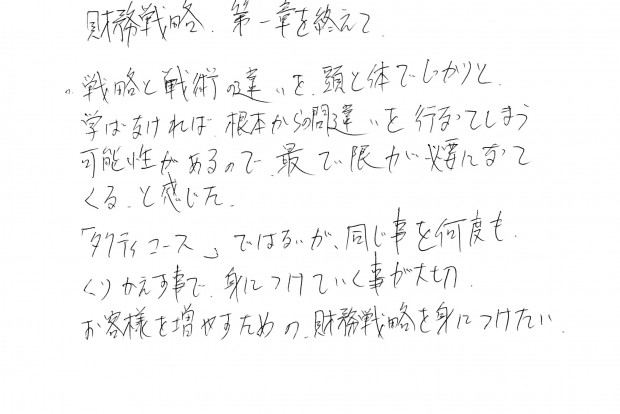 財務戦略、第一章を終えて、
。戦略と戦術の違いを、頭と体でしっかりと、
学ばなければ、根本からの間違いを行なってしまう
可能性があるので、最 限が必要になって
くる、と感じた。
「タクティ 」ではないが、同じ事を何度も、
くりかえす事で、身につけていく事が大切、
お客様を増やすための、財務戦略を身につけたい。